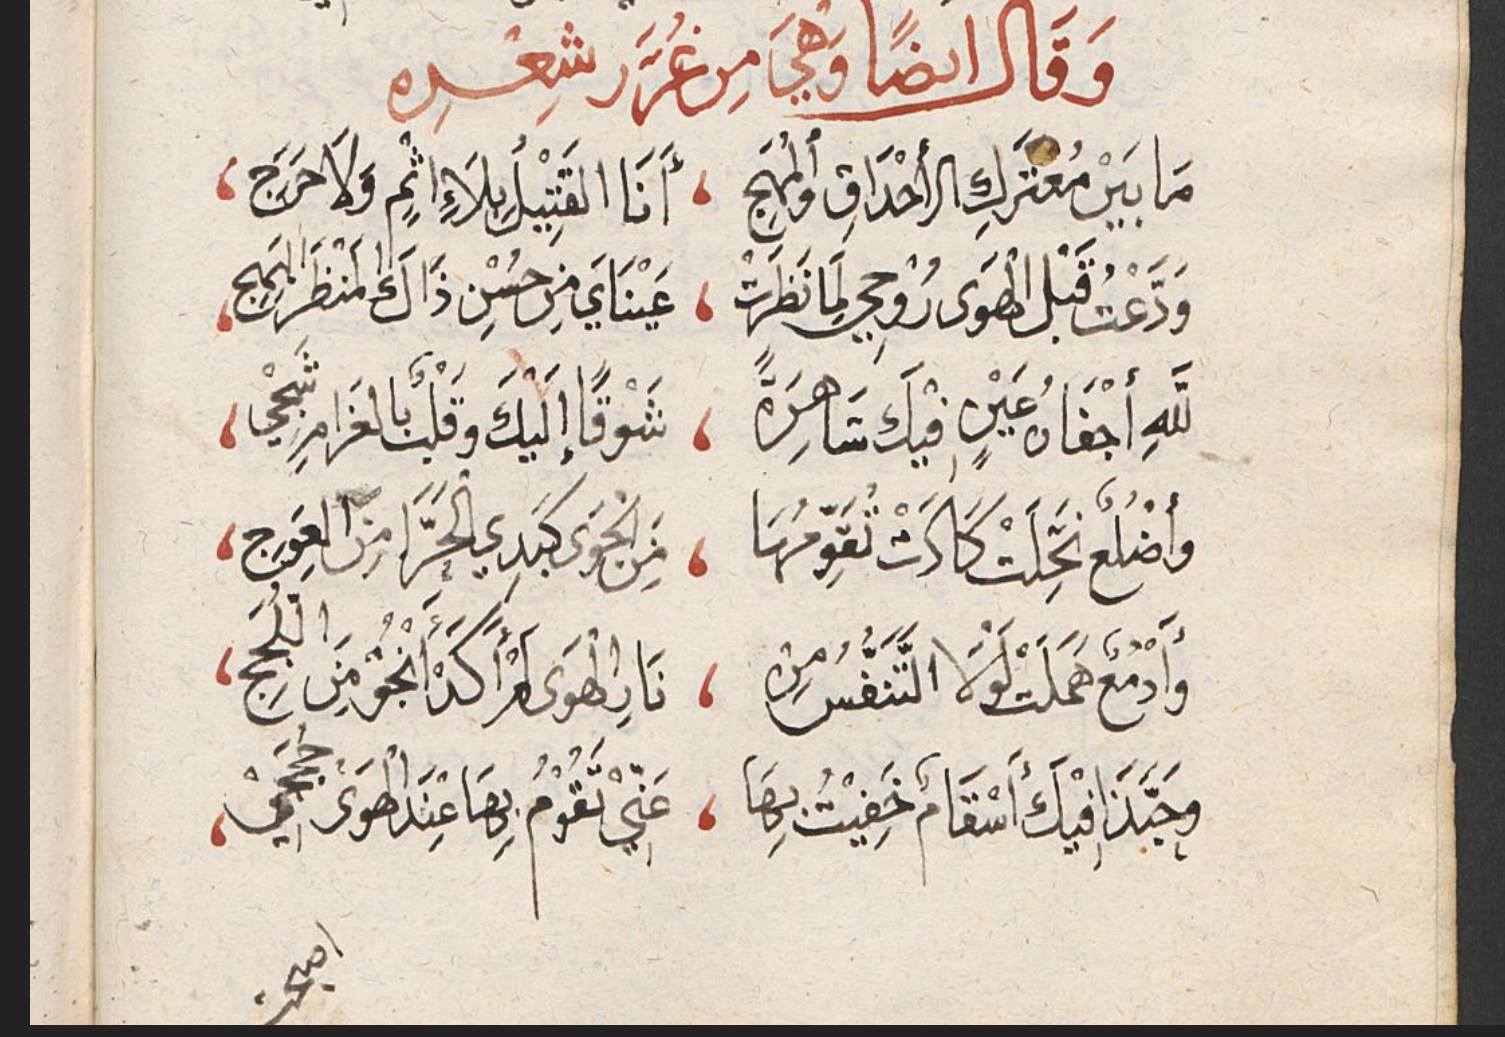 وَقَالَ ايضًا وَهِيَ مِن غُرَر شِعْرِه
مَا بَيْنَ مُعْتَرَكِ الأَحْدَاقِ وَالْمُهَجِ ، أَنَا القَتِيْلُ بِلَاءِ اثْمٍ وَلَا حَرَجِ ،
وَدَّعْتُ قَبْلَ الْهَوَى رُوْحِي لِمَا نَظَرَتْ ، عَيْنَايَ مِن حُسْنِ ذَاكَ الْمَنْظَرِ البَهِجِ ،
لِلَّهِ أَجْفَانُ عَيْنٍ فِيْكَ سَاهِرَةً ، شَوْقًا إِلَيْكَ وَقَلْبٌ بالغَرَامِ شَجْيِ ،
وأَضْلُعٌ نَحِلَتْ كَادَتْ تُقَوِّمُهَا ، مِنَ الْجَوَى كَبَدِي الْحَرَّا مِنَ العِوَجِ ،
وَأَدْمُعٌ هَمَلَتْ لَوْلَا التَّنَفُّسُ مِنْ ، نَارِ الْهَوَى لَمْ أَكَدْ أَنْجُوْ مِنَ اللُّجَجِ ،
وحَبَّذَا فِيْكَ أَسْقَامٌ خَفِيْتُ بِهَا ، عَنِّيْ تَقُوْمُ بِهَا عِنْدَ الْهَوَى حُجَجِيْ ،